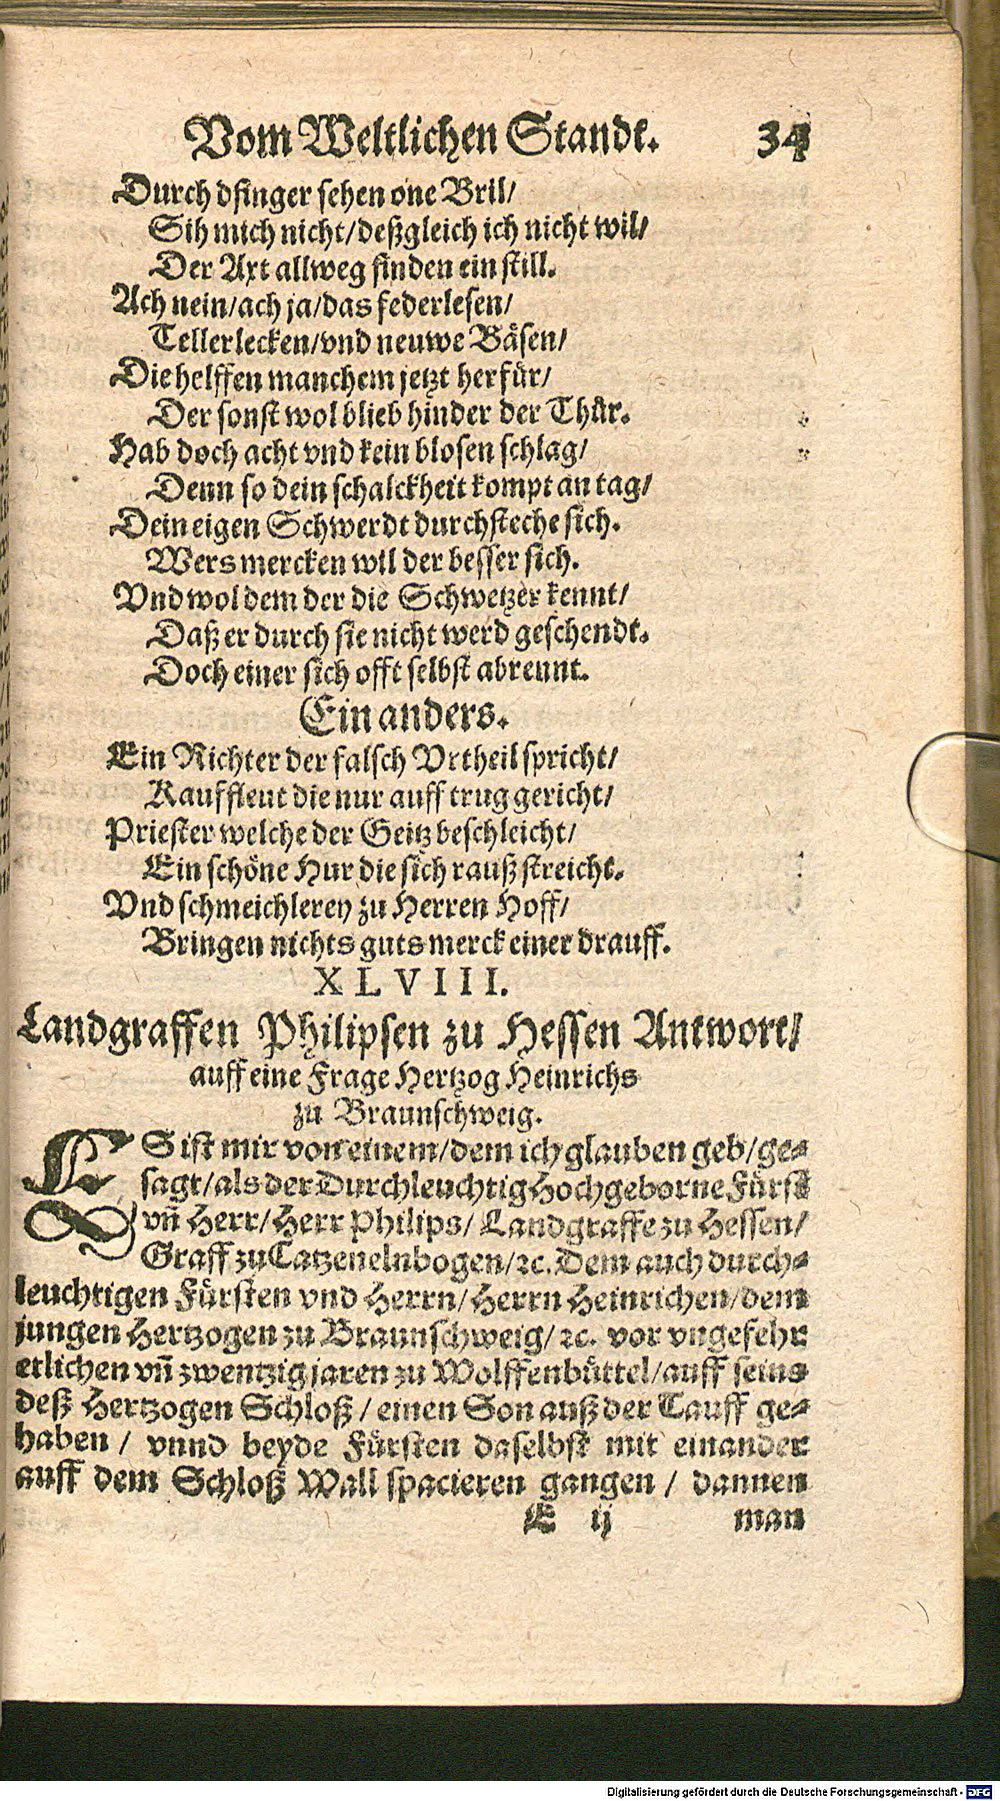 Vom Weltlichen Standt. 34
Durch dfinger sehen one Bril/
Sih mich nicht/deßgleich ich nicht wil/
Der Axt allweg finden ein still.
Ach nein/ach ja/das federlesen/
Tellerlecken/vnd neuwe Bäsen/
Die helffen manchem jetzt herfür/
Der sonst wol blieb hinder der Thür.
Hab doch acht vnd kein blosen schlag/
Denn so dein schalckheit kompt an tag/
Dein eigen Schwerdt durchsteche sich.
Wers mercken wil der besser sich.
Vnd wol dem der die Schwetzer kennt/
Daß er durch sie nicht werd geschendt.
Doch einer sich offt selbst abrennt.
Ein anders.
Ein Richter der falsch Vrtheil spricht/
Kauffleut die nur auff trug gericht/
Priester welche der Geitz beschleicht/
Ein schöne Hur die sich rauß streicht.
Vnd schmeichlerey zu Herren Hoff/
Bringen nichts guts merck einer drauff.
XLVIII.
Landgraffen Philipsen zu Hessen Antwort/
auff eine Frage Hertzog Heinrichs
zu Braunschweig.
ES ist mir von einem/dem ich glauben geb/ge-
sagt/als der Durchleuchtig Hochgeborne Fürst
vñ Herr/Herr Philips/ Landgraffe zu Hessen/
Graff zu Catzenelnbogen/ꝛc. Dem auch durch-
leuchtigen Fürsten vnd Herrn/Herrn Heinrichen/dem
jungen Hertzogen zu Braunschweig/ꝛc. vor vngefehr
etlichen vñ zwentzig jaren zu Wolffenbüttel/auff seins
deß Hertzogen Schloß/einen Son auß der Tauff ge-
haben / vnnd beyde Fürsten daselbst mit einander
auff dem Schloß Wall spacieren gangen / dannen
E ij man
Digitalisierung gefördert durch die Deutsche Forschungsgemeinschaft - DFG